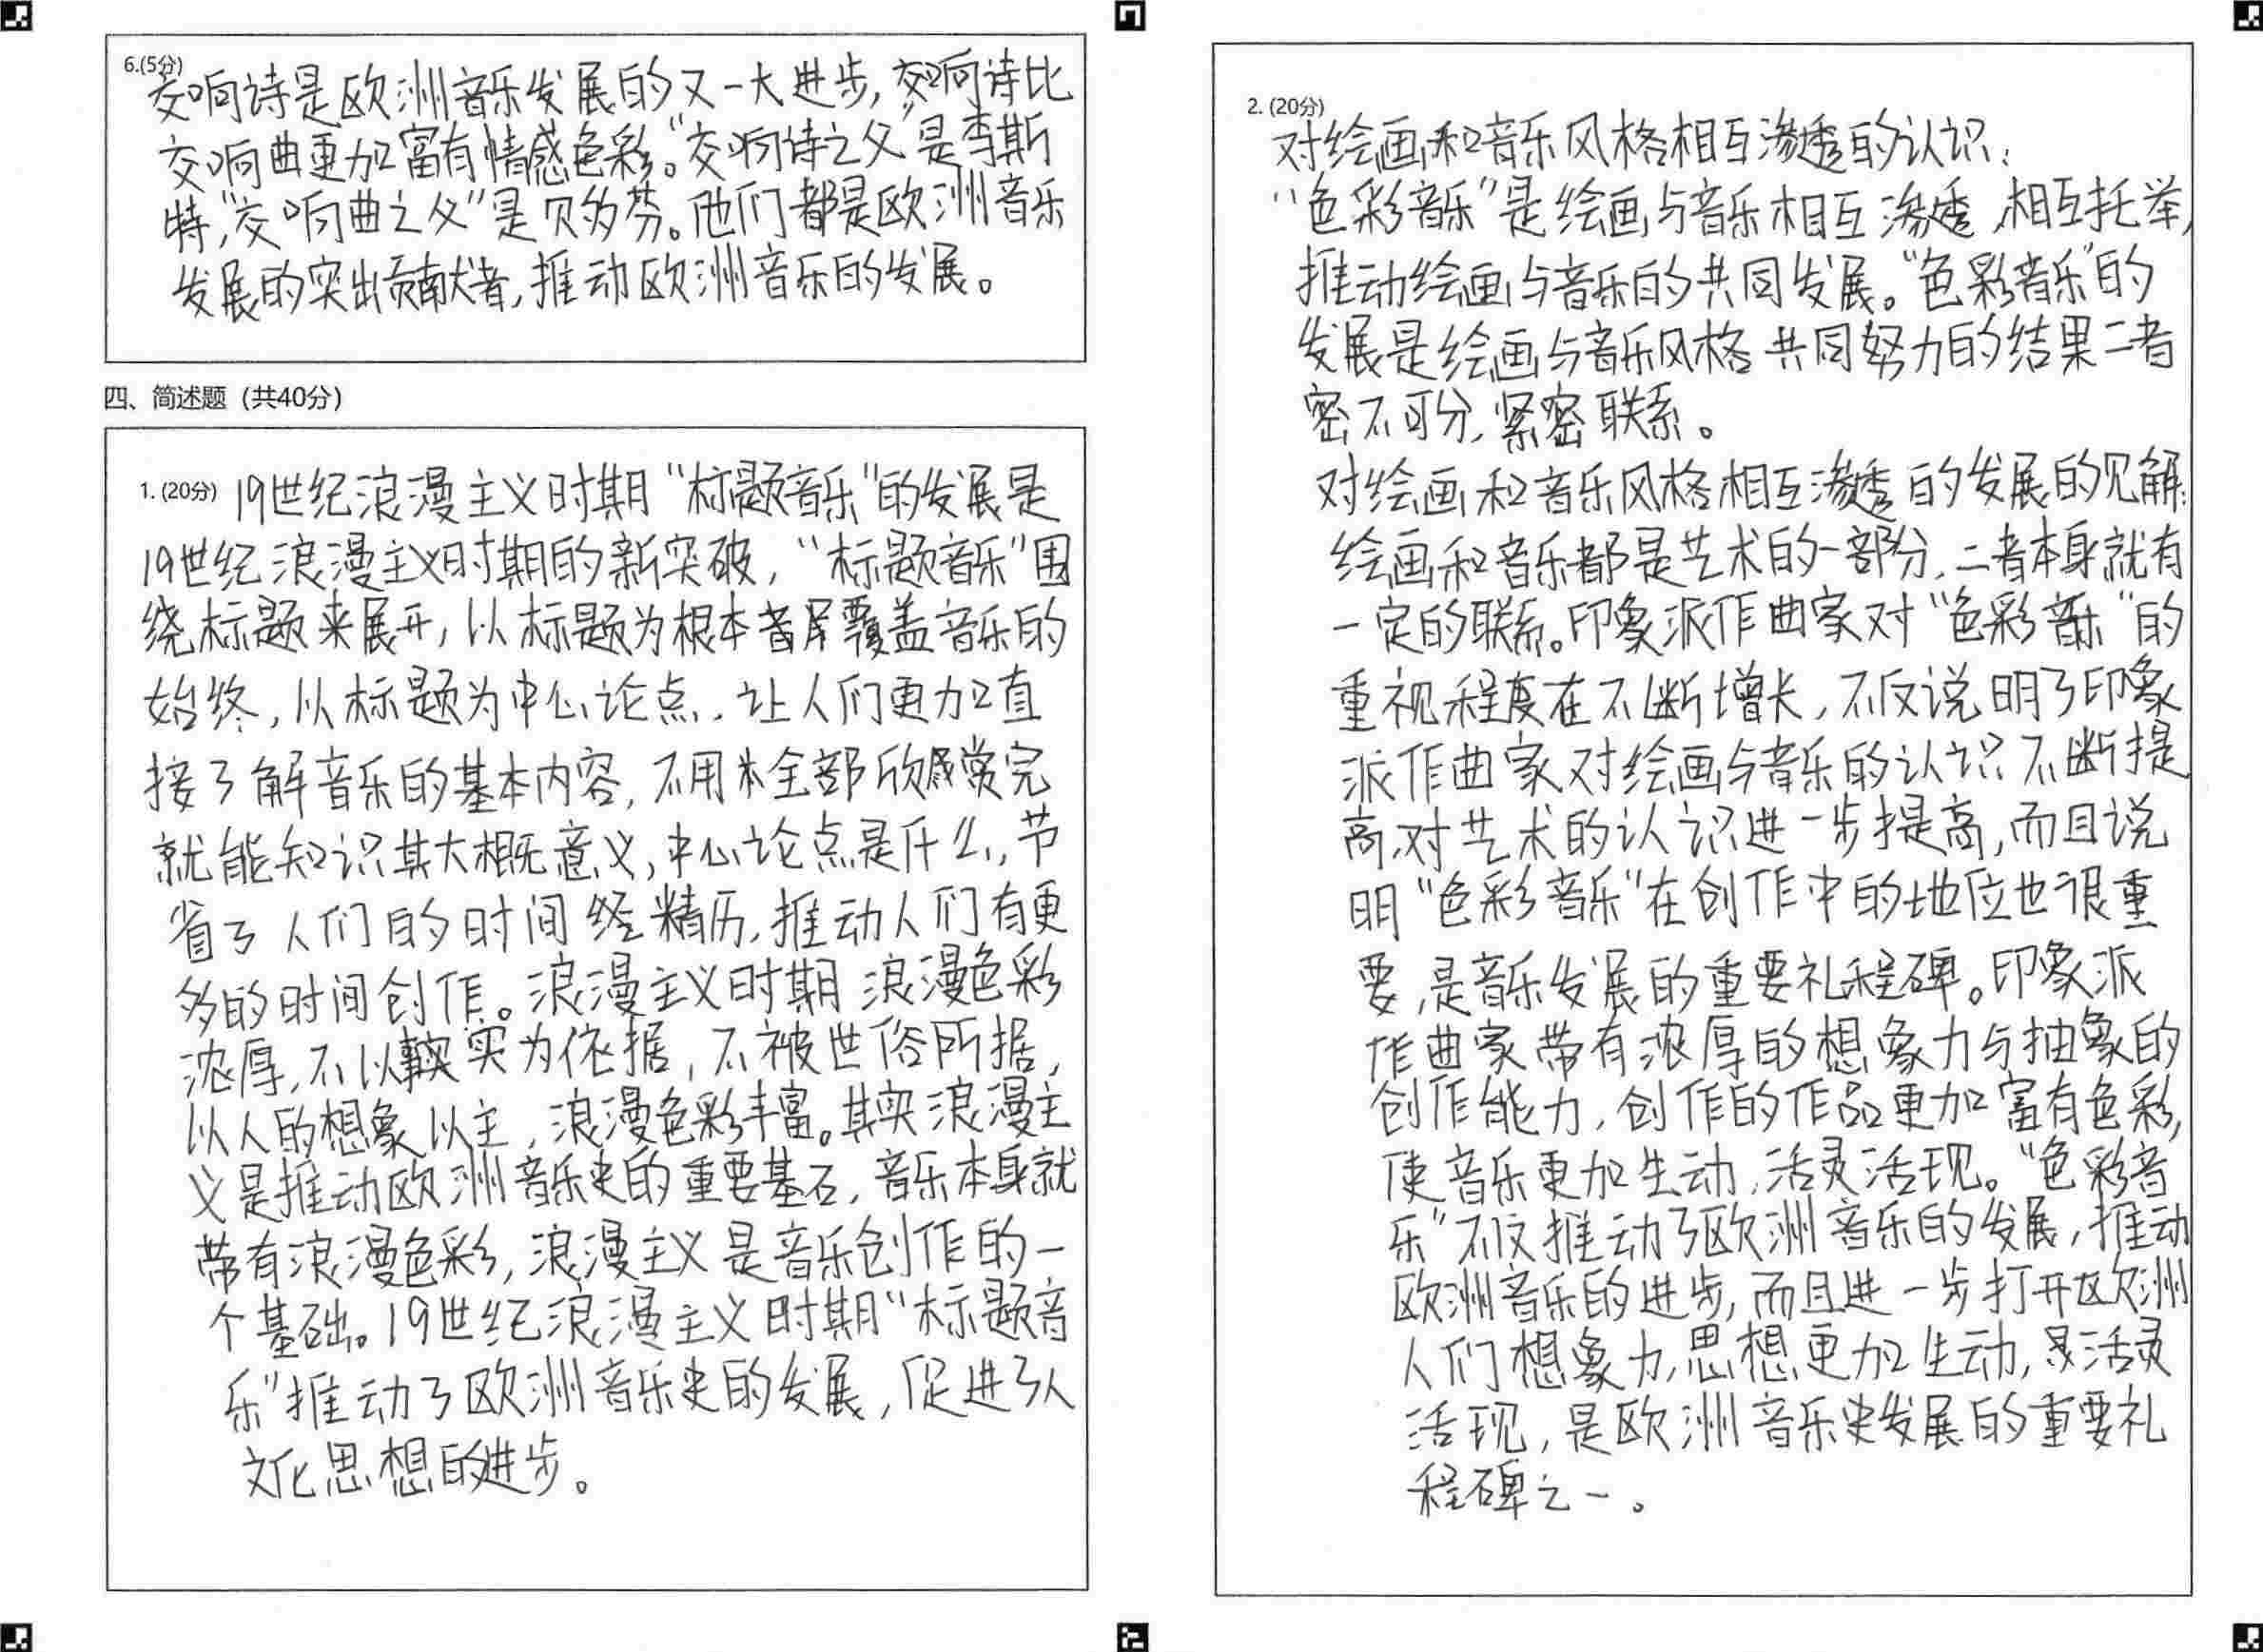 6.(5分)
交响诗是欧洲音乐发展的又一大进步,交响诗比
交响曲更加富有情感色彩。“交响诗之父”是李斯
特,“交响曲之父”是贝多芬。他们都是欧洲音乐
发展的突出贡献者,推动欧洲音乐的发展。
四、简述题(共40分)
1. (20分) 19世纪浪漫主义时期“标题音乐”的发展是
19世纪浪漫主义时期的新突破,“标题音乐”围
绕标题来展开,以标题为根本 覆盖音乐的
始终,以标题为中心论点,让人们更加直
接了解音乐的基本内容,不用 全部欣赏完
就能知识其大概意义,中心论点是什么,节
省了人们的时间 精历,推动人们有更
多的时间创作。浪漫主义时期浪漫色彩
浓厚,不以 实为依据,不被世俗所据,
以人的想象以主,浪漫色彩丰富。其实浪漫主
义是推动欧洲音乐史的重要基石,音乐本身就
带有浪漫色彩,浪漫主义是音乐创作的一
个基础。19世纪浪漫主义时期“标题音
乐”推动了欧洲音乐史的发展,促进了人
文化思想的进步。
2. (20分)
对绘画和音乐风格相互渗透的认识:
“色彩音乐”是绘画与音乐相互渗透,相互托举,
推动绘画与音乐的共同发展。“色彩音乐”的
发展是绘画与音乐风格共同努力的结果二者
密不可分,紧密联系。
对绘画和音乐风格相互渗透的发展的见解:
绘画和音乐都是艺术的一部分,二者本身就有
一定的联系。印象派作曲家对“色彩音乐”的
重视程度在不断增长,不仅说明了印象
派作曲家对绘画与音乐的认识不断提
高,对艺术的认识进一步提高,而且说
明“色彩音乐”在创作中的地位也很重
要,是音乐发展的重要礼程碑。印象派
作曲家带有浓厚的想象力与抽象的
创作能力,创作的作品更加富有色彩,
使音乐更加生动,活灵活现。“色彩音
乐”不仅推动了欧洲音乐的发展,推动
欧洲音乐的进步,而且进一步打开欧洲
人们想象力,思想更加生动,活灵
活现,是欧洲音乐史发展的重要礼
程碑之一。